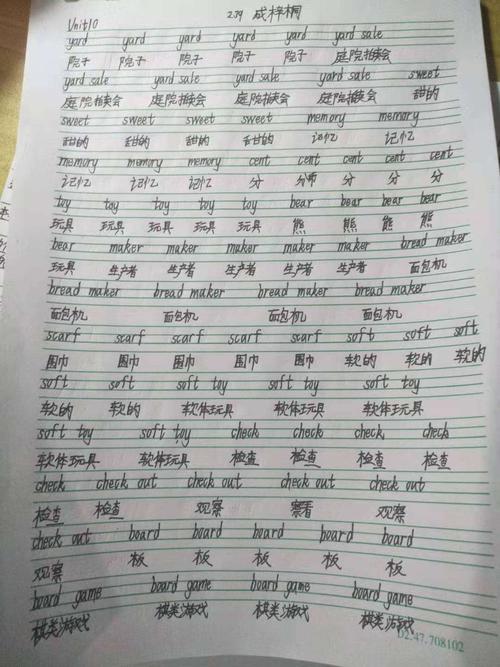 Unit10 2.29 成梓桐
yard yard yard yard yard yard sale
院子 院子 院子 院子 院子 庭院拍卖会
yard sale yard sale yard sale yard sale sweet
庭院拍卖会 庭院拍卖会 庭院拍卖会 庭院拍卖会 甜的
sweet sweet sweet sweet memory memory
甜的 甜的 甜的 甜的 记忆 记忆
memory memory memory cent cent cent cent cent
记忆 记忆 记忆 分 分币 分 分 分
toy toy toy toy toy bear bear bear bear
玩具 玩具 玩具 玩具 玩具 熊 熊 熊 熊
bear maker maker maker maker maker bread maker
玩具 生产者 生产者 生产者 生产者 生产者 面包机
bread maker bread maker bread maker bread maker
面包机 面包机 面包机 面包机
scarf scarf scarf scarf scarf soft soft soft
围巾 围巾 围巾 围巾 围巾 软的 软的 软的
soft soft soft toy soft toy soft toy
软的 软的 软体玩具 软体玩具 软体玩具
soft toy soft toy check check check check
软体玩具 软体玩具 检查 检查 检查 检查
check check out check out check out check out
检查 检查 观察 察看 观察
check out board board board board board
观察 板 板 板 板 板
board game board game board game board game
棋类游戏 棋类游戏 棋类游戏 棋类游戏
02.47.708102